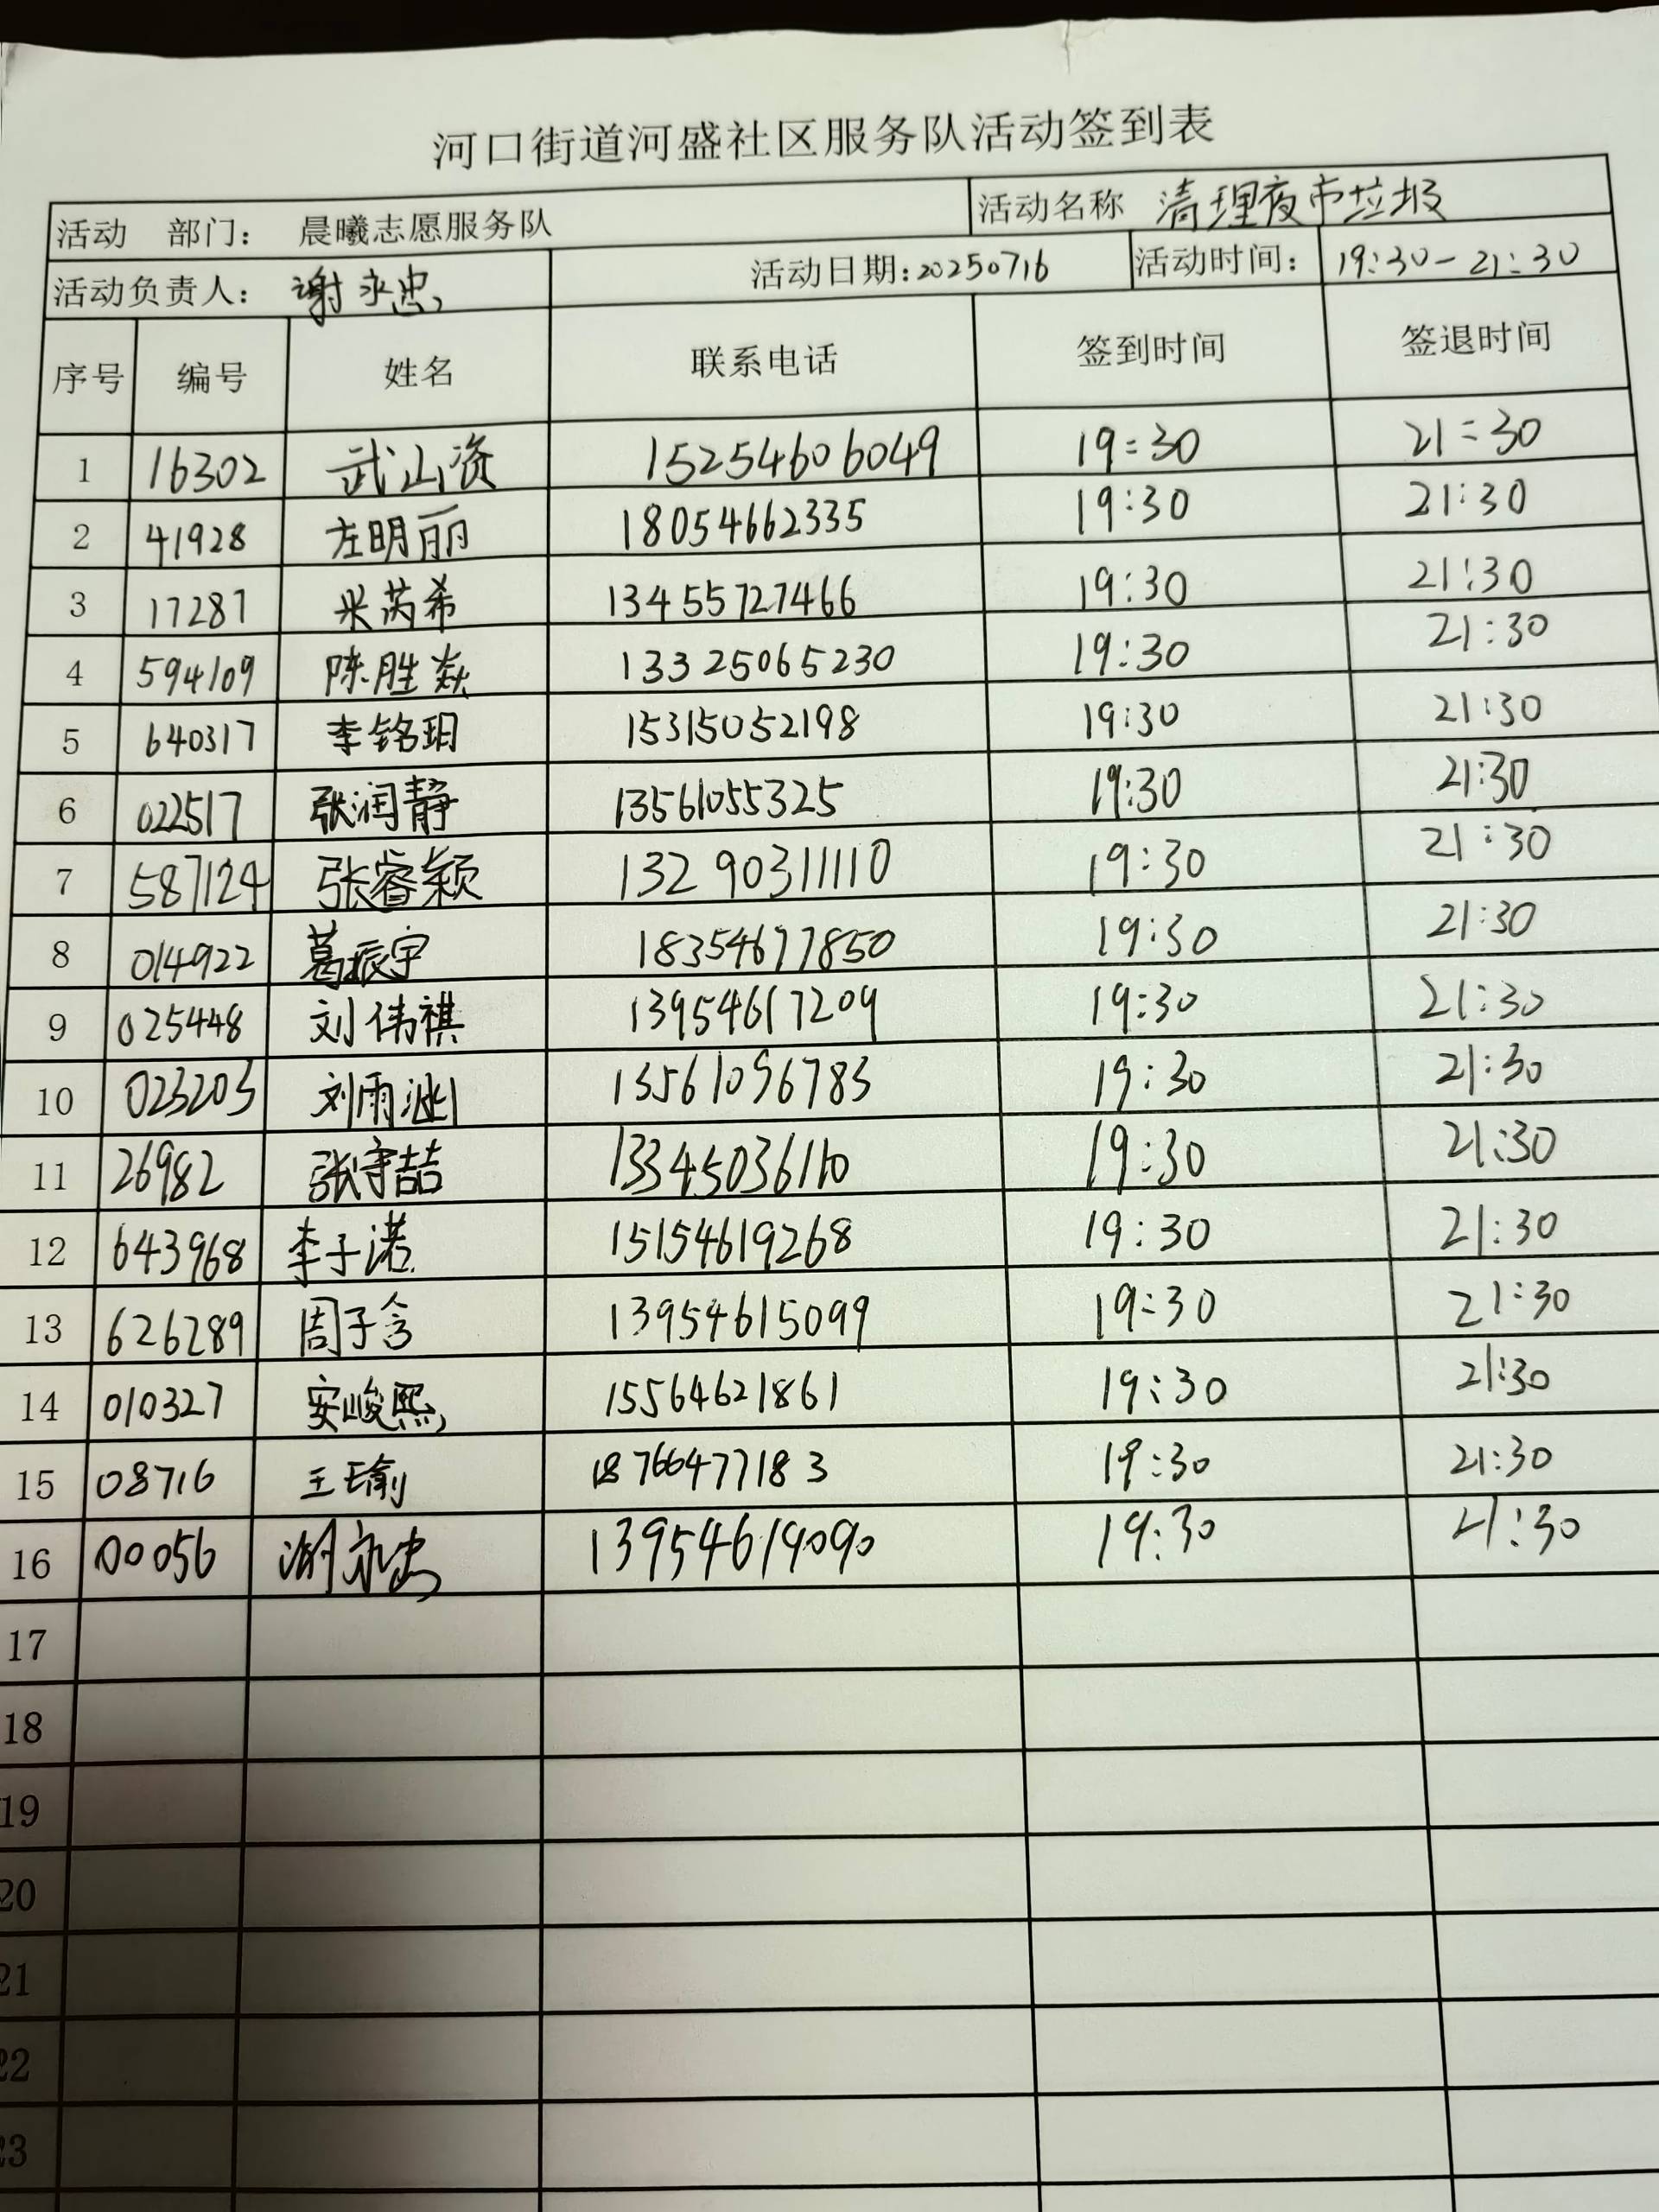 河口街道河盛社区服务队活动签到表
活动 部门： 晨曦志愿服务队 活动名称 清理夜市垃圾
活动负责人： 谢永忠 活动日期：20250716 活动时间： 19:30-21:30
序号 编号 姓名 联系电话 签到时间 签退时间
1 16302 武山资 15254606049 19:30 21:30
2 41928 左明丽 18054662335 19:30 21:30
3 17287 米芮希 13455727466 19:30 21:30
4 594109 陈胜焱 13325065230 19:30 21:30
5 640317 李铭玥 15315052198 19:30 21:30
6 022517 张润静 13561055325 19:30 21:30
7 587124 张睿颖 13290311110 19:30 21:30
8 014922 葛振宇 18354677850 19:30 21:30
9 025448 刘伟祺 13954617209 19:30 21:30
10 023203 刘雨 13561096783 19:30 21:30
11 26982 张宇喆 13345036110 19:30 21:30
12 643968 李子诺 15154619268 19:30 21:30
13 626289 周子含 13954615099 19:30 21:30
14 010327 安峻熙 15564621861 19:30 21:30
15 08716 王瑜 18766477183 19:30 21:30
16 00056 谢永忠 13954619090 19:30 21:30
17
18
19
20
21
22
23